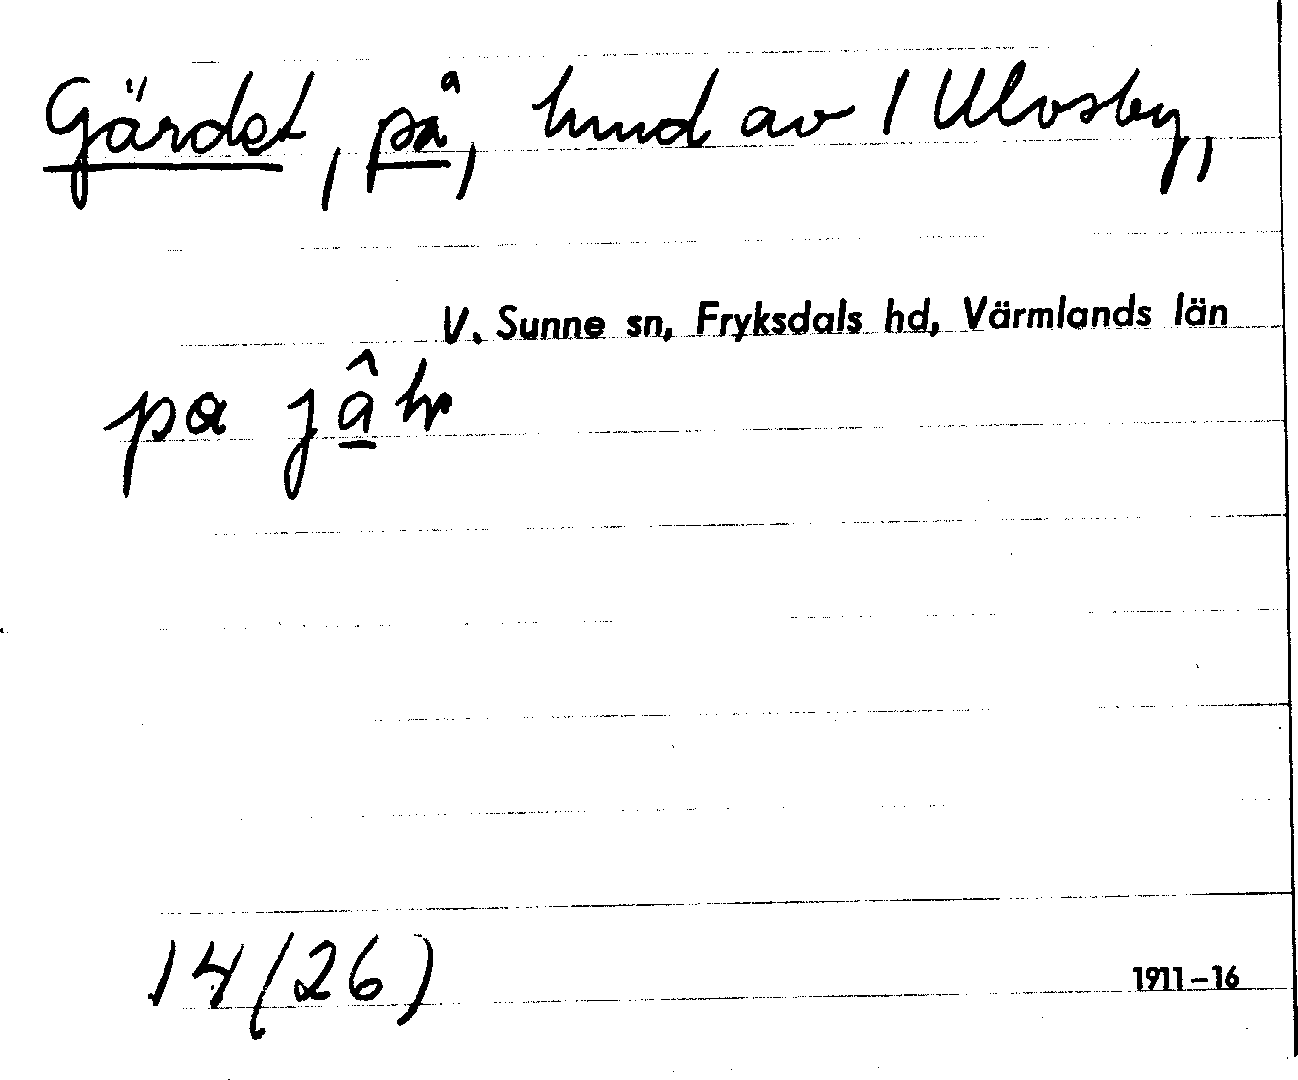 Gärdet, på, hmd av 1 Ulvsby,
V. Sunne sn, Fryksdals hd, Värmlands län
pa
14 (26)
1911–16